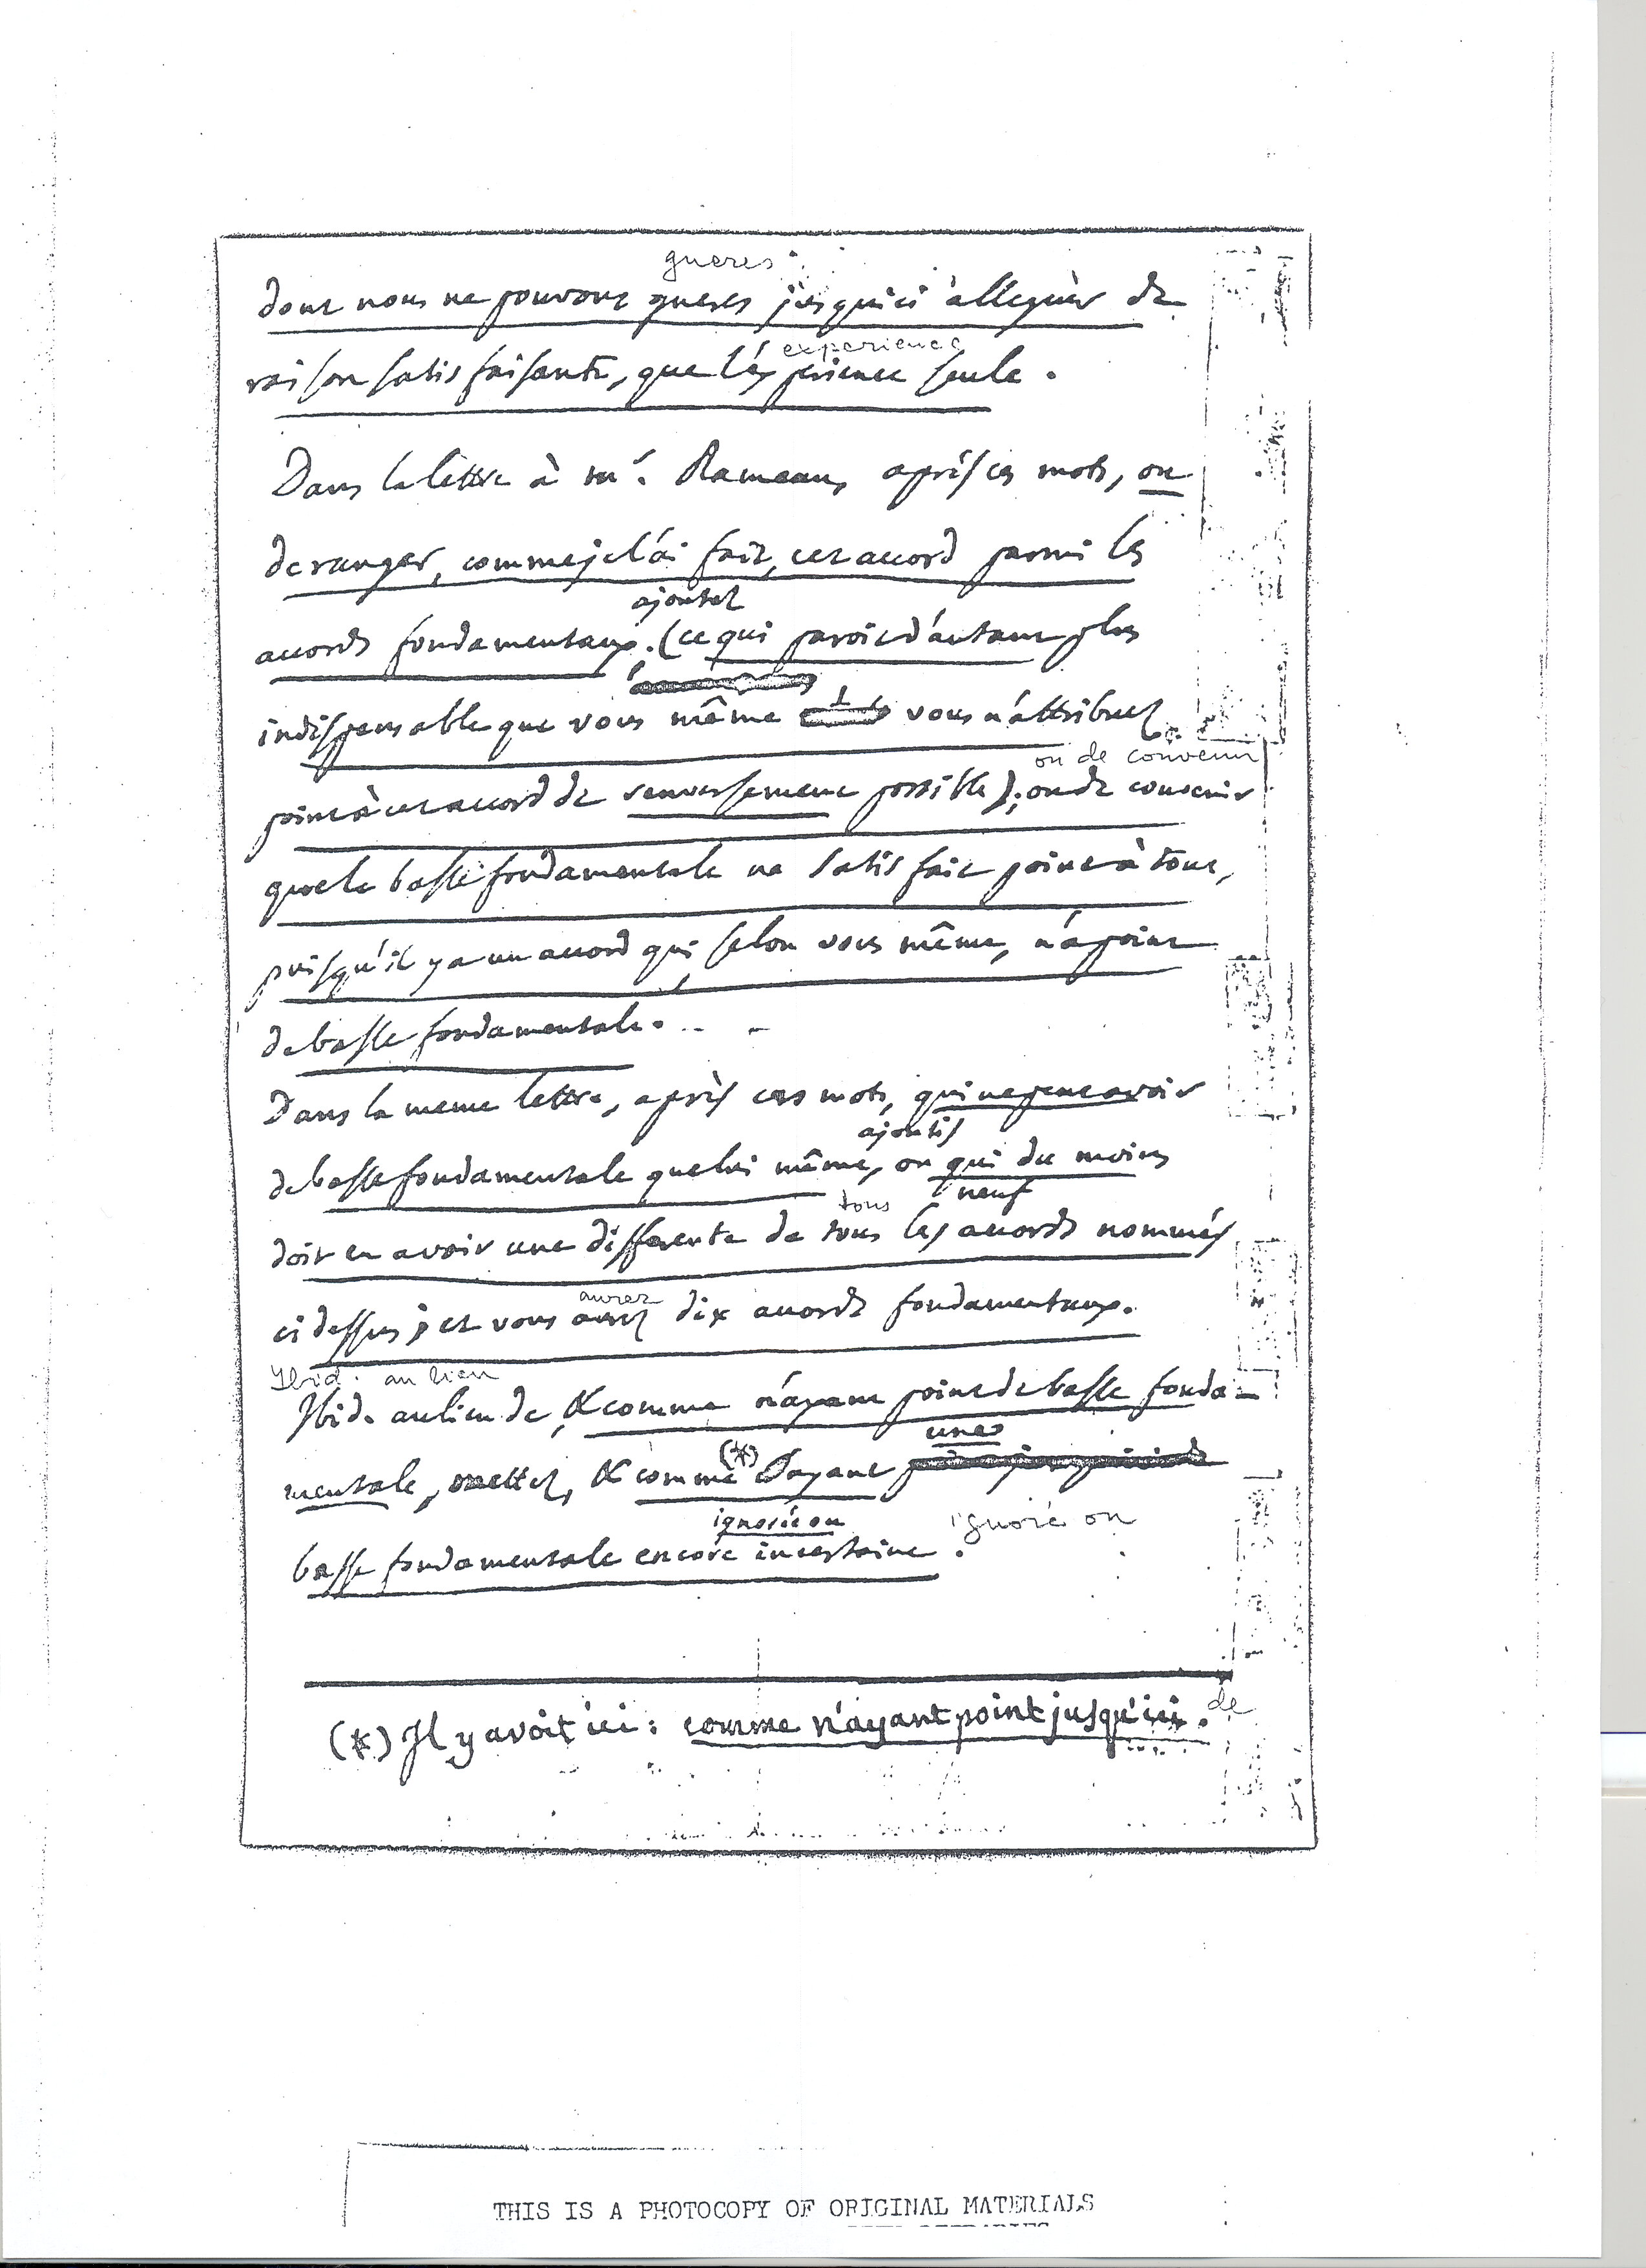 gueres
dont nous ne pouvons gueres jusqu'ici alleguér de
experience
raison satisfaisante, que l'éxperience seule.
Dans la lettre à mr. Rameau, après ces mots, ou
de ranger, comme je l'ai fait, cet accord parmi les
ajoutez
accords fondamentaux. (ce qui paroit d'autant plus
indispensable que vous même vous n'attribuez
ou de convenir
point à cet accord de renversement possible); ou de convenir
que la basse fondamentale ne satisfait point à tout,
puisqu'il y a un accord qui, selon vous même, n'a point
de basse fondamentale.
Dans la meme lettre, après ces mots, qui ne peut avoir
ajoutés
de basse fondamentale que lui même, ou qui du moins
tous neuf
doit en avoir une differente de tous les accords nommés
aurez
ci dessus; et vous aurez dix accords fondamentaux.
Ibid. au lieu
Ibid. au lieu de, & comme n'ayant point de basse fonda-
une
mentale, mettez, & comme (*) ayant
ignorée ou ignoré ou
basse fondamentale encore incertaine.
(*) Il y avoit ici : comme n'ayant point jusqu'ici. de
THIS IS A PHOTOCOPY OF ORIGINAL MATERIALS